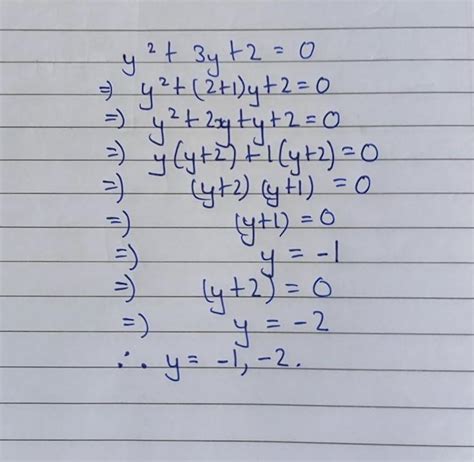 y² + 3y + 2 = 0
⇒ y² + (2+1)y + 2 = 0
⇒ y² + 2y + y + 2 = 0
⇒ y(y+2) + 1(y+2) = 0
⇒ (y+2) (y+1) = 0
⇒ (y+1) = 0
⇒ y = -1
⇒ (y+2) = 0
⇒ y = -2
∴ y = -1, -2.